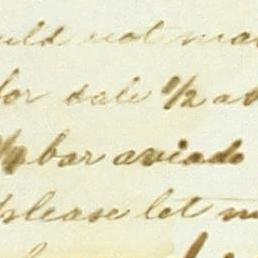 uld not ma
for sale 1/2 a
1/4 bar aviado
please let m